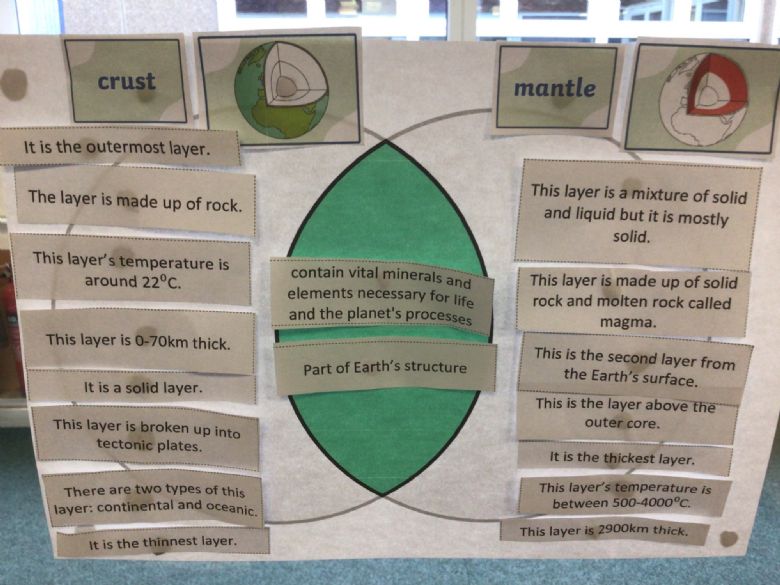 crust
mantle
It is the outermost layer.
The layer is made up of rock.
This layer's temperature is
around 22⁰C.
This layer is 0-70km thick.
It is a solid layer.
This layer is broken up into
tectonic plates.
There are two types of this
layer: continental and oceanic.
It is the thinnest layer.
contain vital minerals and
elements necessary for life
and the planet's processes
Part of Earth's structure
This layer is a mixture of solid
and liquid but it is mostly
solid.
This layer is made up of solid
rock and molten rock called
magma.
This is the second layer from
the Earth's surface.
This is the layer above the
outer core.
It is the thickest layer.
This layer's temperature is
between 500-4000⁰C.
This layer is 2900km thick.